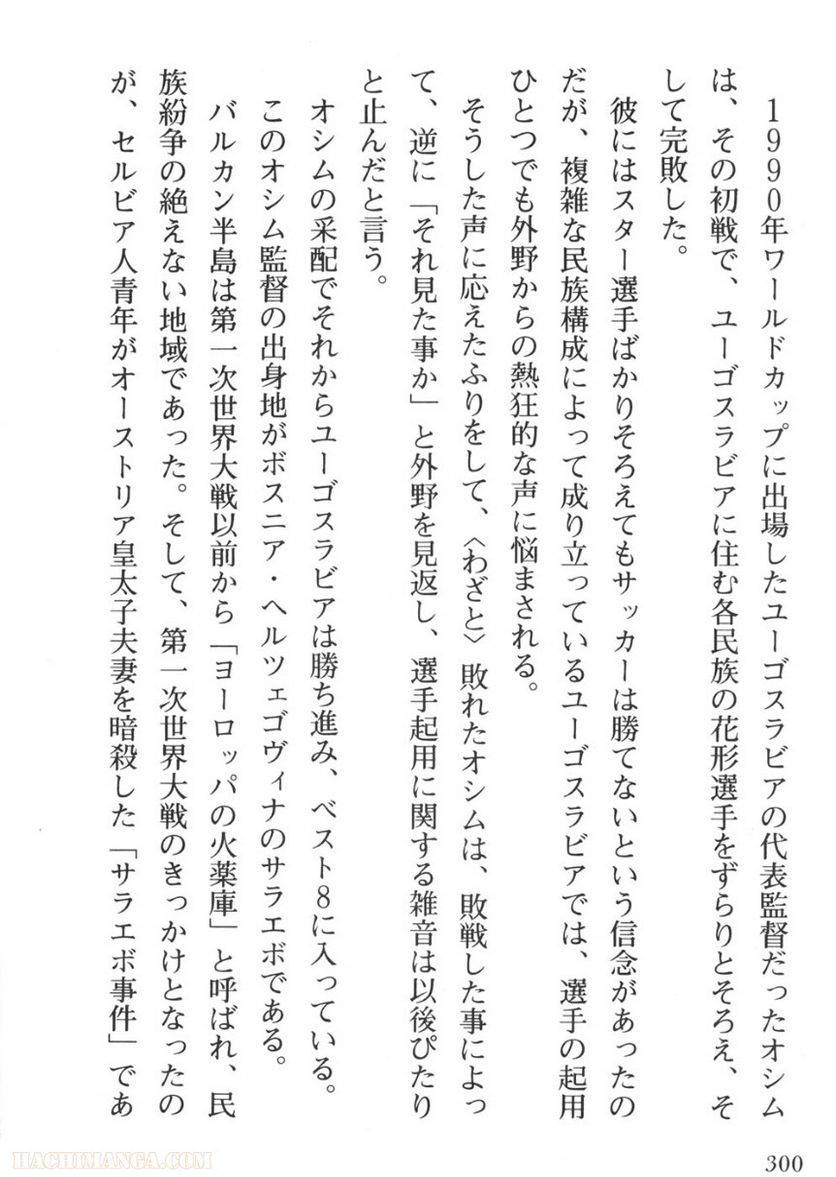 1990年ワールドカップに出場したユーゴスラビアの代表監督だったオシム
は、その初戦で、ユーゴスラビアに住む各民族の花形選手をずらりとそろえ、そ
して完敗した。
彼にはスター選手ばかりそろえてもサッカーは勝てないという信念があったの
だが、複雑な民族構成によって成り立っているユーゴスラビアでは、選手の起用
ひとつでも外野からの熱狂的な声に悩まされる。
そうした声に応えたふりをして、〈わざと〉敗れたオシムは、敗戦した事によっ
て、逆に「それ見た事か」と外野を見返し、選手起用に関する雑音は以後ぴたり
と止んだと言う。
オシムの采配でそれからユーゴスラビアは勝ち進み、ベスト8に入っている。
このオシム監督の出身地がボスニア・ヘルツェゴヴィナのサラエボである。
バルカン半島は第一次世界大戦以前から「ヨーロッパの火薬庫」と呼ばれ、民
族紛争の絶えない地域であった。そして、第一次世界大戦のきっかけとなったの
が、セルビア人青年がオーストリア皇太子夫妻を暗殺した「サラエボ事件」であ
300
HACHIMANGA.COM